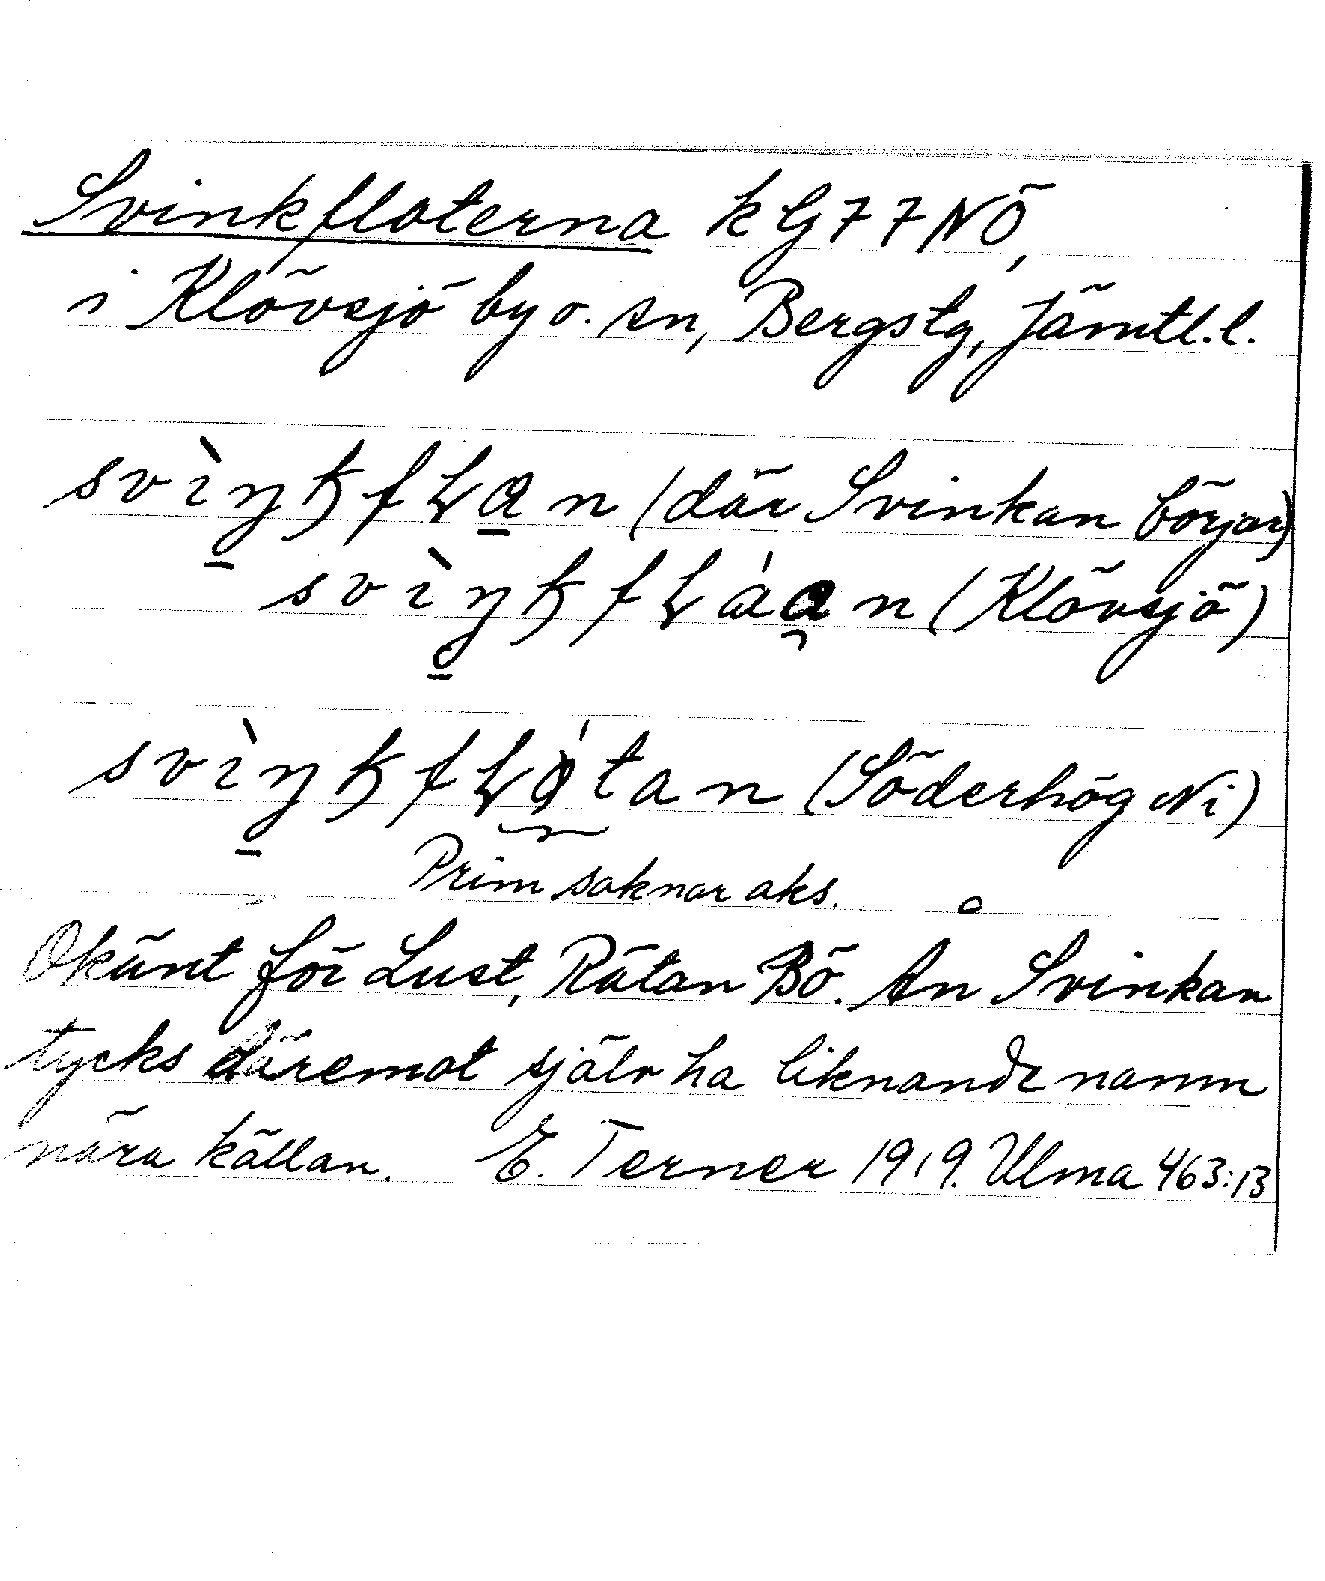 Svinkfloterna k G77NÖ,
i Klövsjö by o. sn, Bergstg, Jämtl.l.
(där Svinkan börjar)
(Klövsjö)
(Söderhög Ni)
Prim saknar aks.
Okänt för Lust, Rätan Bö. Ån Svinkan
tycks däremot själv ha liknande namn
nära källan. E. Terner 1919. Ulma 463:13